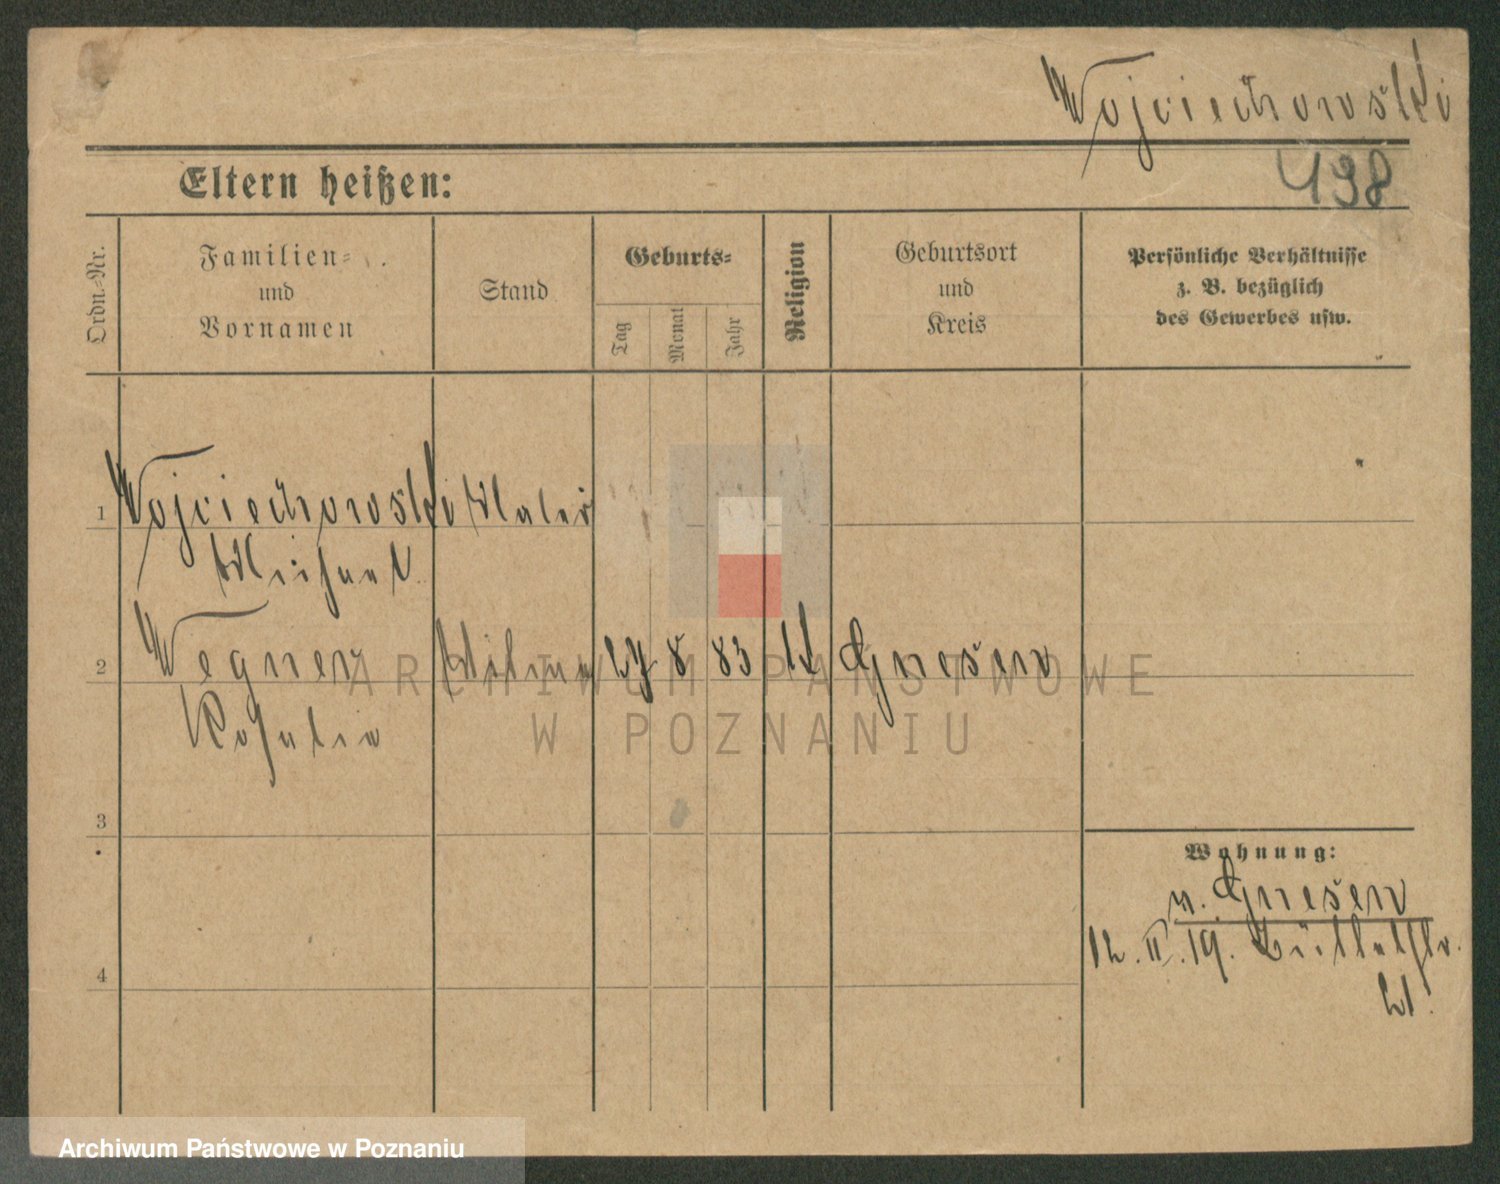 Wojciechowski
Eltern heißen:
498
Ordn.-Nr.
Familien-
und
Vornamen
Stand
Geburts-
Tag
Monat
Jahr
Religion
Geburtsort
und
Kreis
Persönliche Verhältnisse
z. B. bezüglich
des Gewerbes usw.
1 Wojciechowski Maler
Michael
2 Wegner Witwe 27 8 83 Gnesen
Rosalie
ARCHIWUM PAŃSTWOWE
W POZNANIU
3
Wohnung:
v. Gnesen
12. II. 19.
4
21.
Archiwum Państwowe w Poznaniu